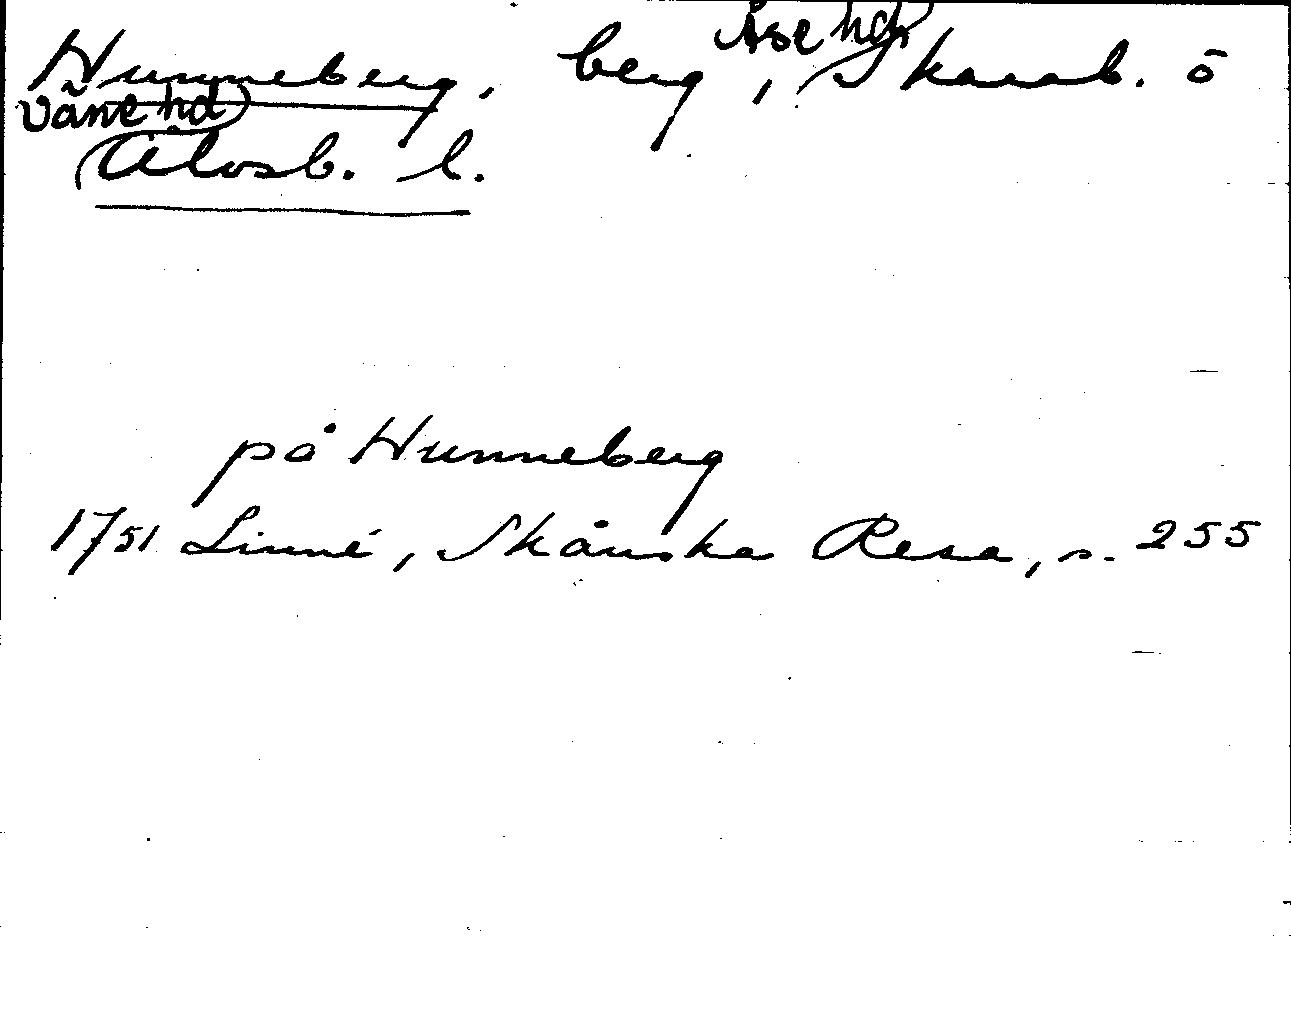 Åse hd,
Hunneberg, berg, Skarab. o
Väne hd
Älvsb. l.
på Hunneberg
1751 Linné, Skånska Resa, s. 255